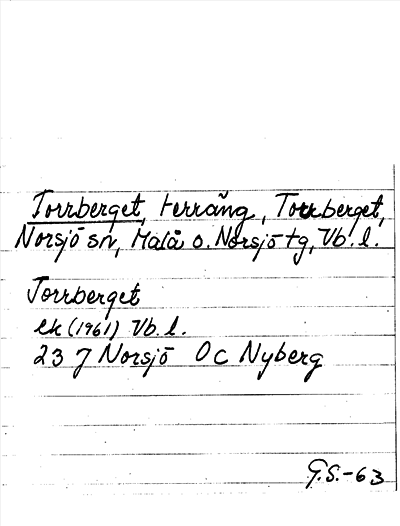 Torrberget, terräng, Torrberget,
Norsjö sn, Malå o. Norsjö tg, Vb. l.
Torrberget
ek (1961) Vb. l.
23 J Norsjö Oc Nyberg
G.S.-63